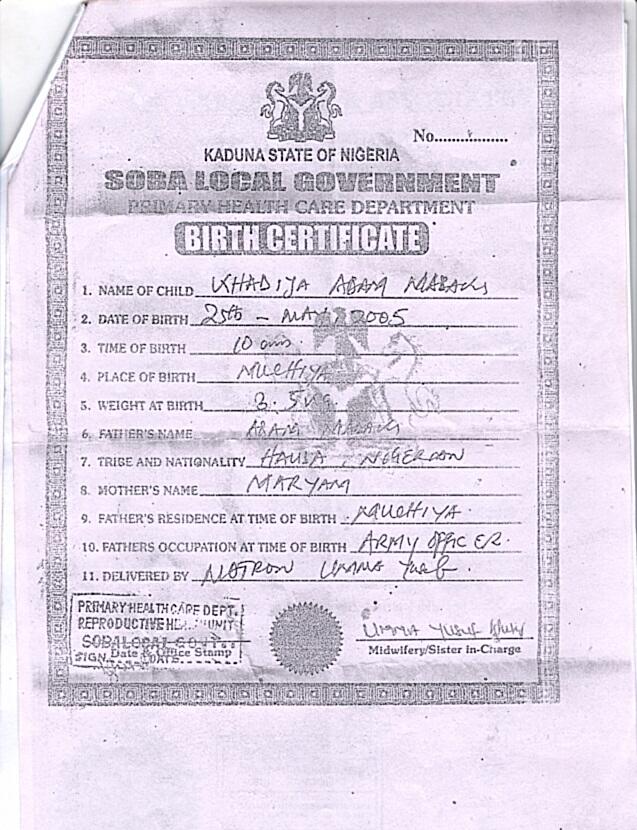 No..................
KADUNA STATE OF NIGERIA
SOBA LOCAL GOVERNMENT
PRIMARY HEALTH CARE DEPARTMENT
BIRTH CERTIFICATE
1. NAME OF CHILD KHADIJA ADAM MABAKS
2. DATE OF BIRTH 25th - MAY 2005
3. TIME OF BIRTH 10 am
4. PLACE OF BIRTH MUCHIYA
5. WEIGHT AT BIRTH 3.5kg
6. FATHER'S NAME ADAM
7. TRIBE AND NATIONALITY HAUSA, NIGERIAN
8. MOTHER'S NAME MARYAM
9. FATHER'S RESIDENCE AT TIME OF BIRTH MUCHIYA.
10. FATHERS OCCUPATION AT TIME OF BIRTH ARMY OFFICER.
11. DELIVERED BY
PRIMARY HEALTH CARE DEPT.
REPRODUCTIVE UNIT
SOBA LOCAL GOVT.
Date & Office Stamp
SIGN. DATE
Yusuf
Midwifery/Sister In-Charge